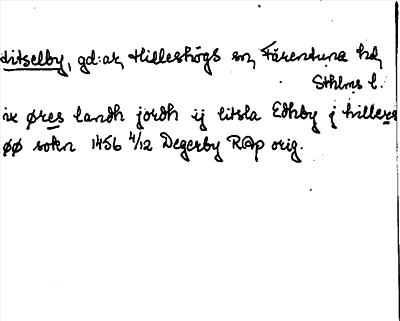 Litselby, gd:ar, Hilleshögs sn, Färentuna hd,
Sthlms l.
ix øres landh jordh ij litsla Edhby j hillers
øø sokn 1456 4/12 Degerby RAp orig.